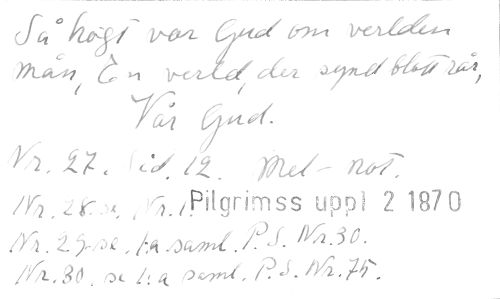 Så högt var Gud om verlden
mån, En verld, der synd blott rår,
Vår Gud.
Nr. 27. Sid. 12. Mel- not.
Nr. 28. se, Nr. 1. Pilgrimss uppl 2 1870
Nr. 29. se 1:a saml. P. S. Nr. 30.
Nr. 30. se 1:a saml. P. S. Nr. 75.